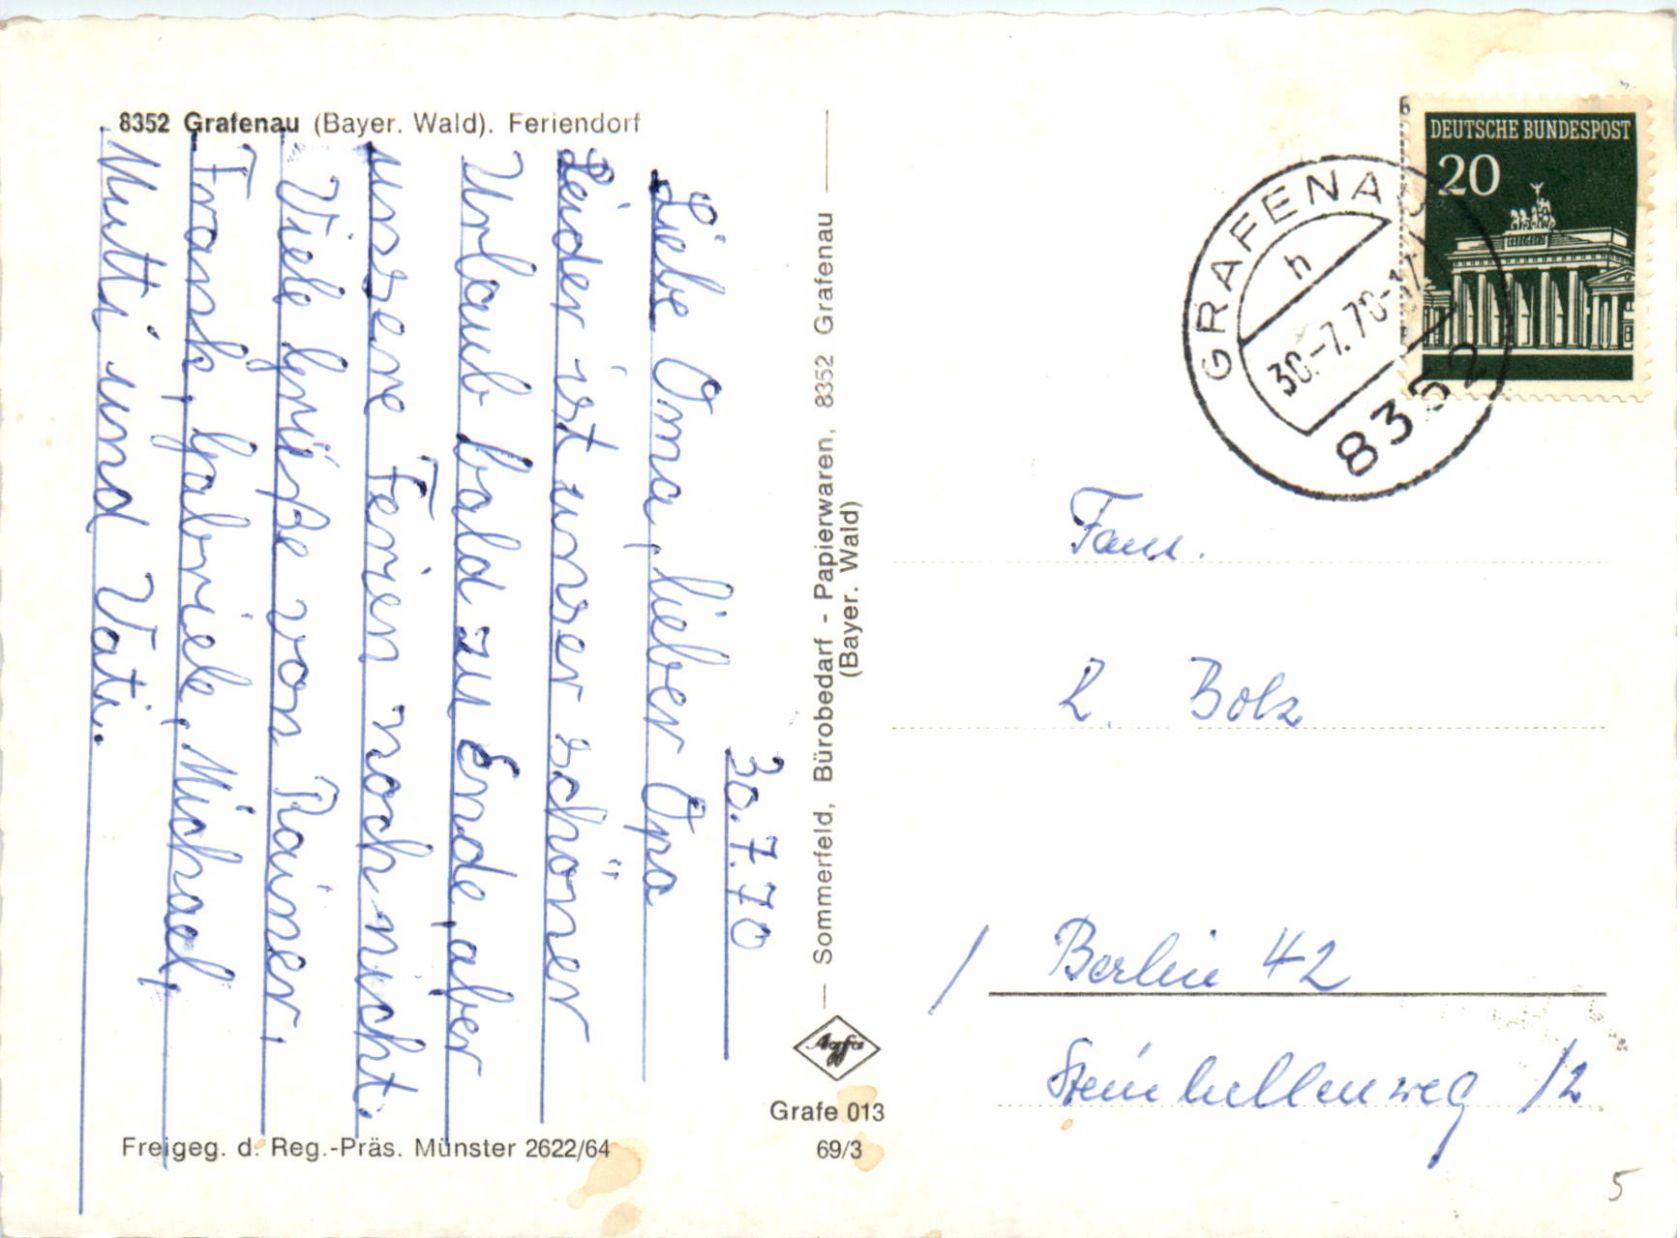 8352 Grafenau (Bayer. Wald). Feriendorf
30.7.70
Liebe Oma, lieber Opa
Leider ist unser schöner
Urlaub bald zu Ende, aber
unsere Ferien noch nicht.
Viele Grüße von Rainer,
Frank, Gabriele, Michael,
Mutti und Vati.
Freigeg. d. Reg.-Präs. Münster 2622/64
Sommerfeld, Bürobedarf - Papierwaren, 8352 Grafenau
(Bayer. Wald)
Agfa
Grafe 013
69/3
DEUTSCHE BUNDESPOST
20
GRAFENAU
h
30.-7.70
8352
Fam.
R. Bolz
1 Berlin 42
5